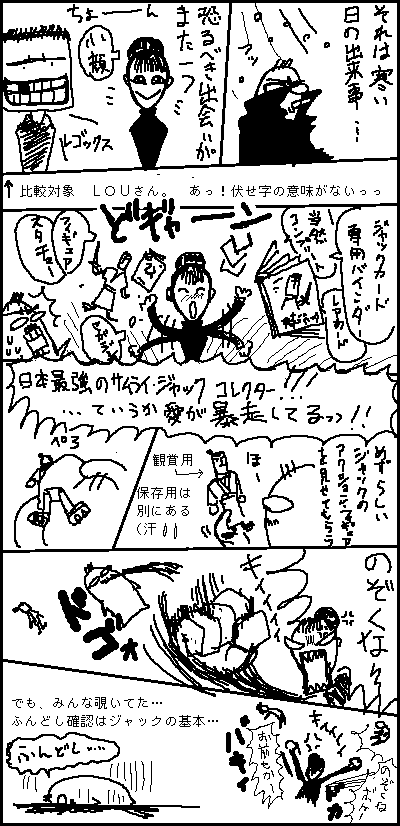 それは寒い
日の出来事…
恐るべき出会いが
また一つ
ちょーーん
小顔
ルーゴックス
↑比較対象 LOUさん。 あっ!伏せ字の意味がないっっ
ジャックカード
専用バインダー
レアカード
当然
コンプリート
どギャーン
フィギュア
スタチュー
日本最強のサムライ・ジャック コレクター!!!
…ていうか愛が暴走してるっっ!!
めずらしい
ジャックの
アクションフィギュア
を見せてもらう
ほー
観賞用
保存用は
別にある
(汗
ペろ
のぞくなァ
キィィィ
ドゴォ
でも、みんな覗いてた…
ふんどし確認はジャックの基本…
のぞくな
お前らかー
バキィ
ふんどし…